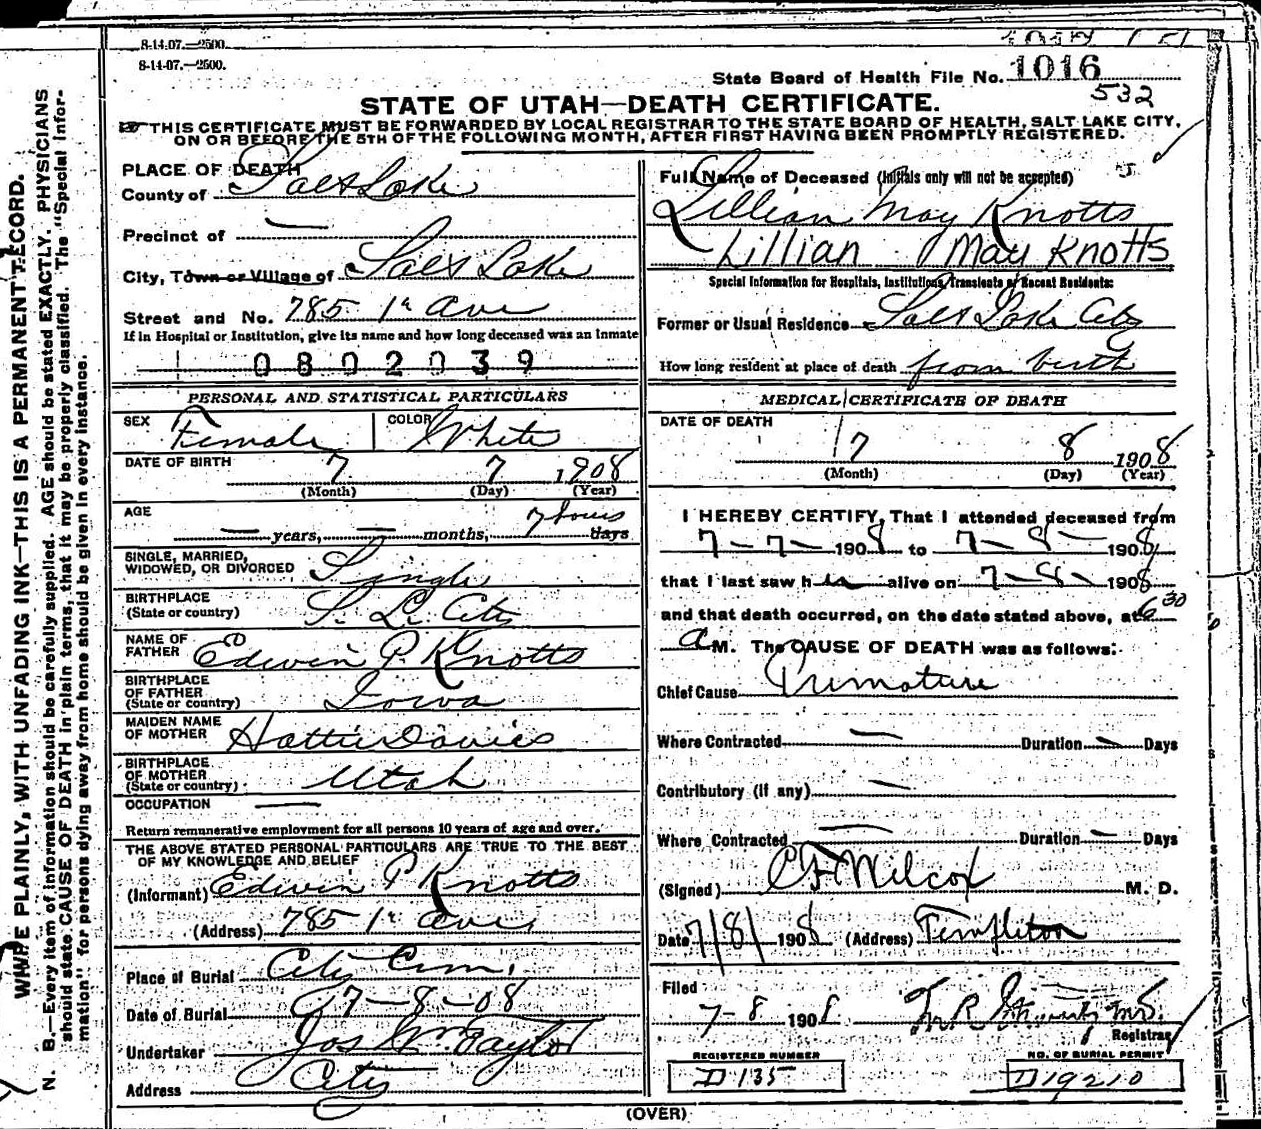 8-14-07.—2500.
8-14-07.—2500.
State Board of Health File No. 1016
532
STATE OF UTAH—DEATH CERTIFICATE.
THIS CERTIFICATE MUST BE FORWARDED BY LOCAL REGISTRAR TO THE STATE BOARD OF HEALTH, SALT LAKE CITY,
ON OR BEFORE THE 5TH OF THE FOLLOWING MONTH, AFTER FIRST HAVING BEEN PROMPTLY REGISTERED.
PLACE OF DEATH
County of Salt Lake
Precinct of —
City, Town or Village of Salt Lake
Street and No. 785 1st Ave
If in Hospital or Institution, give its name and how long deceased was an Inmate
0802039
PERSONAL AND STATISTICAL PARTICULARS
SEX Female COLOR White
DATE OF BIRTH 7 7 1908
(Month) (Day) (Year)
AGE
— years, — months, 7 hours days
SINGLE, MARRIED,
WIDOWED, OR DIVORCED Single
BIRTHPLACE
(State or country) S. L. City
NAME OF
FATHER Edwin P. Knotts
BIRTHPLACE
OF FATHER
(State or country) Iowa
MAIDEN NAME
OF MOTHER Hattie Davies
BIRTHPLACE
OF MOTHER
(State or country) Utah
OCCUPATION —
Return remunerative employment for all persons 10 years of age and over.
THE ABOVE STATED PERSONAL PARTICULARS ARE TRUE TO THE BEST
OF MY KNOWLEDGE AND BELIEF
(Informant) Edwin P Knotts
(Address) 785 1st Ave
Place of Burial City Cem.
Date of Burial 7-8-08
Undertaker Jos Wm Taylor
Address City
Full Name of Deceased (Initials only will not be accepted)
Lillian May Knotts
Lillian May Knotts
Special Information for Hospitals, Institutions, Transients or Recent Residents:
Former or Usual Residence Salt Lake City
How long resident at place of death from birth
MEDICAL CERTIFICATE OF DEATH
DATE OF DEATH
7 8 1908
(Month) (Day) (Year)
I HEREBY CERTIFY, That I attended deceased from
7-7-1908 to 7-8-1908
that I last saw her alive on 7-8-1908
and that death occurred, on the date stated above, at 6 30
A M. The CAUSE OF DEATH was as follows:
Chief Cause Premature
Where Contracted — Duration — Days
Contributory (if any) —
Where Contracted — Duration — Days
(Signed) C F Wilcox M. D.
Date 7/8/ 1908 (Address) Templeton
Filed
7-8 1908
Registrar
REGISTERED NUMBER
D 135
NO. OF BURIAL PERMIT
D19210
(OVER)
WRITE PLAINLY, WITH UNFADING INK—THIS IS A PERMANENT RECORD.
N. B.—Every item of information should be carefully supplied. AGE should be stated EXACTLY. PHYSICIANS
should state CAUSE OF DEATH in plain terms, that it may be properly classified. The "Special Infor-
mation" for persons dying away from home should be given in every instance.